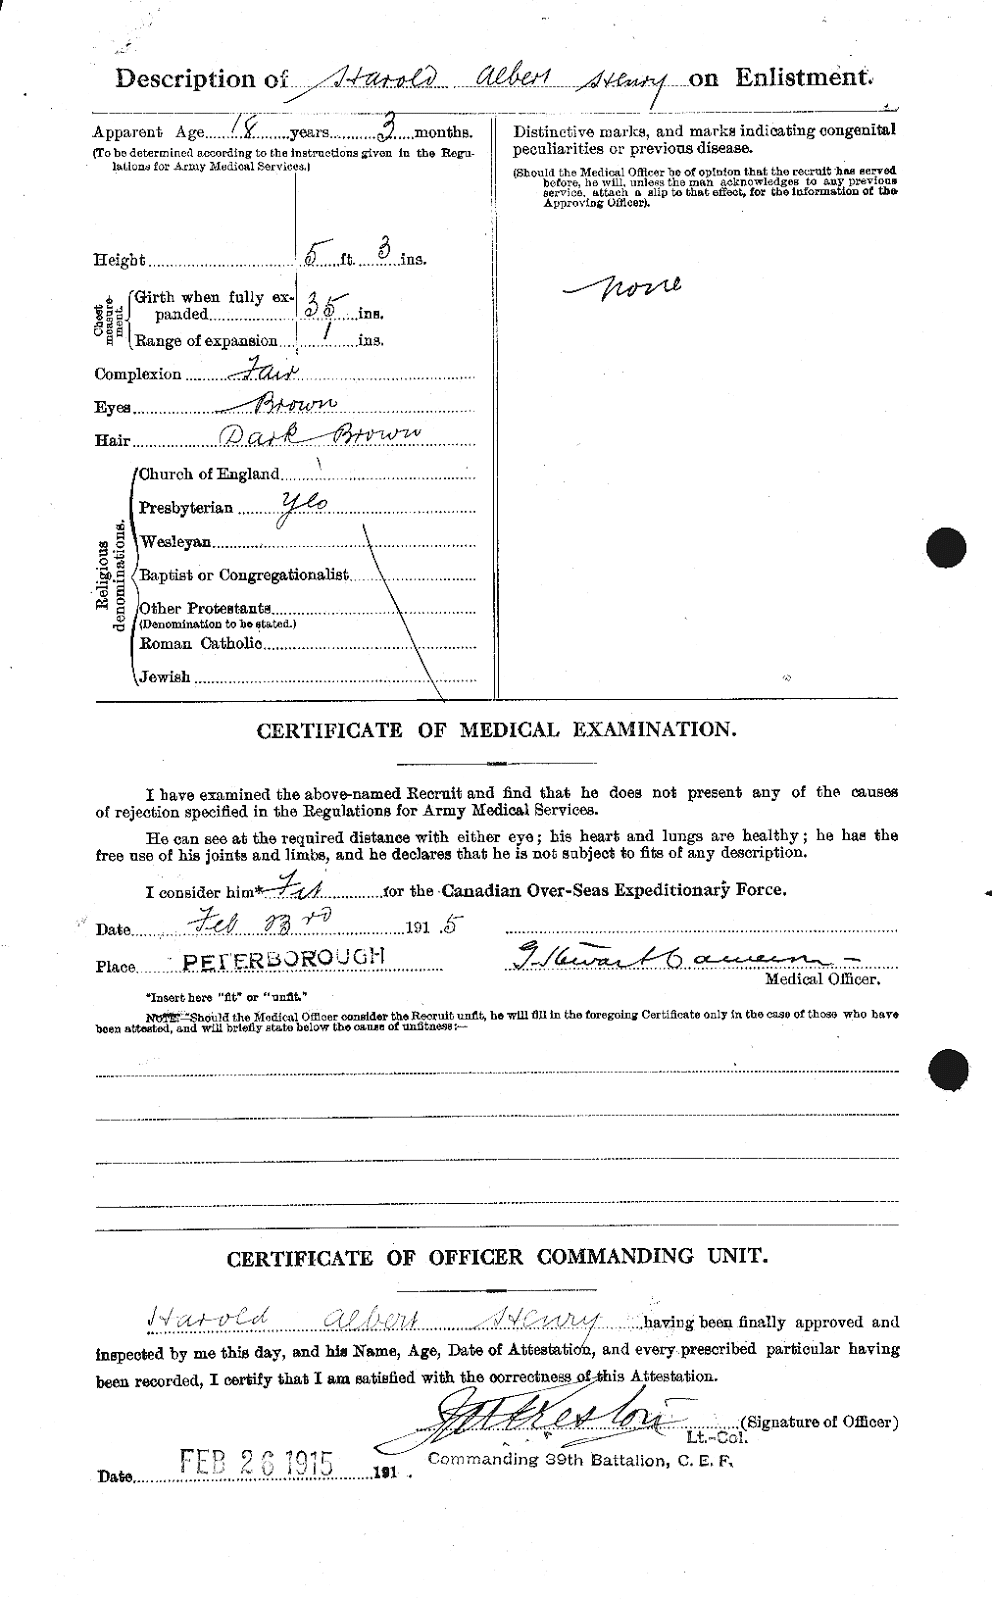 Description of Harold Albert Henry on Enlistment.
Apparent Age 18 years 3 months.
(To be determined according to the instructions given in the Regu-
lations for Army Medical Services.)
Height 5 ft. 3 ins.
Chest measure-ment.
Girth when fully ex-
panded 35 ins.
Range of expansion 1 ins.
Complexion Fair
Eyes Brown
Hair Dark Brown
Religious denominations.
Church of England
Presbyterian Yes
Wesleyan
Baptist or Congregationalist
Other Protestants
(Denomination to be stated.)
Roman Catholic
Jewish
Distinctive marks, and marks indicating congenital
peculiarities or previous disease.
(Should the Medical Officer be of opinion that the recruit has served
before, he will, unless the man acknowledges to any previous
service, attach a slip to that effect, for the information of the
Approving Officer).
None
CERTIFICATE OF MEDICAL EXAMINATION.
I have examined the above-named Recruit and find that he does not present any of the causes
of rejection specified in the Regulations for Army Medical Services.
He can see at the required distance with either eye; his heart and lungs are healthy; he has the
free use of his joints and limbs, and he declares that he is not subject to fits of any description.
I consider him* Fit for the Canadian Over-Seas Expeditionary Force.
Date Feb 23rd 1915
Place PETERBOROUGH
G Stewart Cameron
Medical Officer.
*Insert here "fit" or "unfit."
NOTE.—Should the Medical Officer consider the Recruit unfit, he will fill in the foregoing Certificate only in the case of those who have
been attested, and will briefly state below the cause of unfitness:—
CERTIFICATE OF OFFICER COMMANDING UNIT.
Harold Albert Henry having been finally approved and
inspected by me this day, and his Name, Age, Date of Attestation, and every prescribed particular having
been recorded, I certify that I am satisfied with the correctness of this Attestation.
Preston (Signature of Officer)
Lt.-Col.
Commanding 39th Battalion, C. E. F.
Date FEB 26 1915 191 .